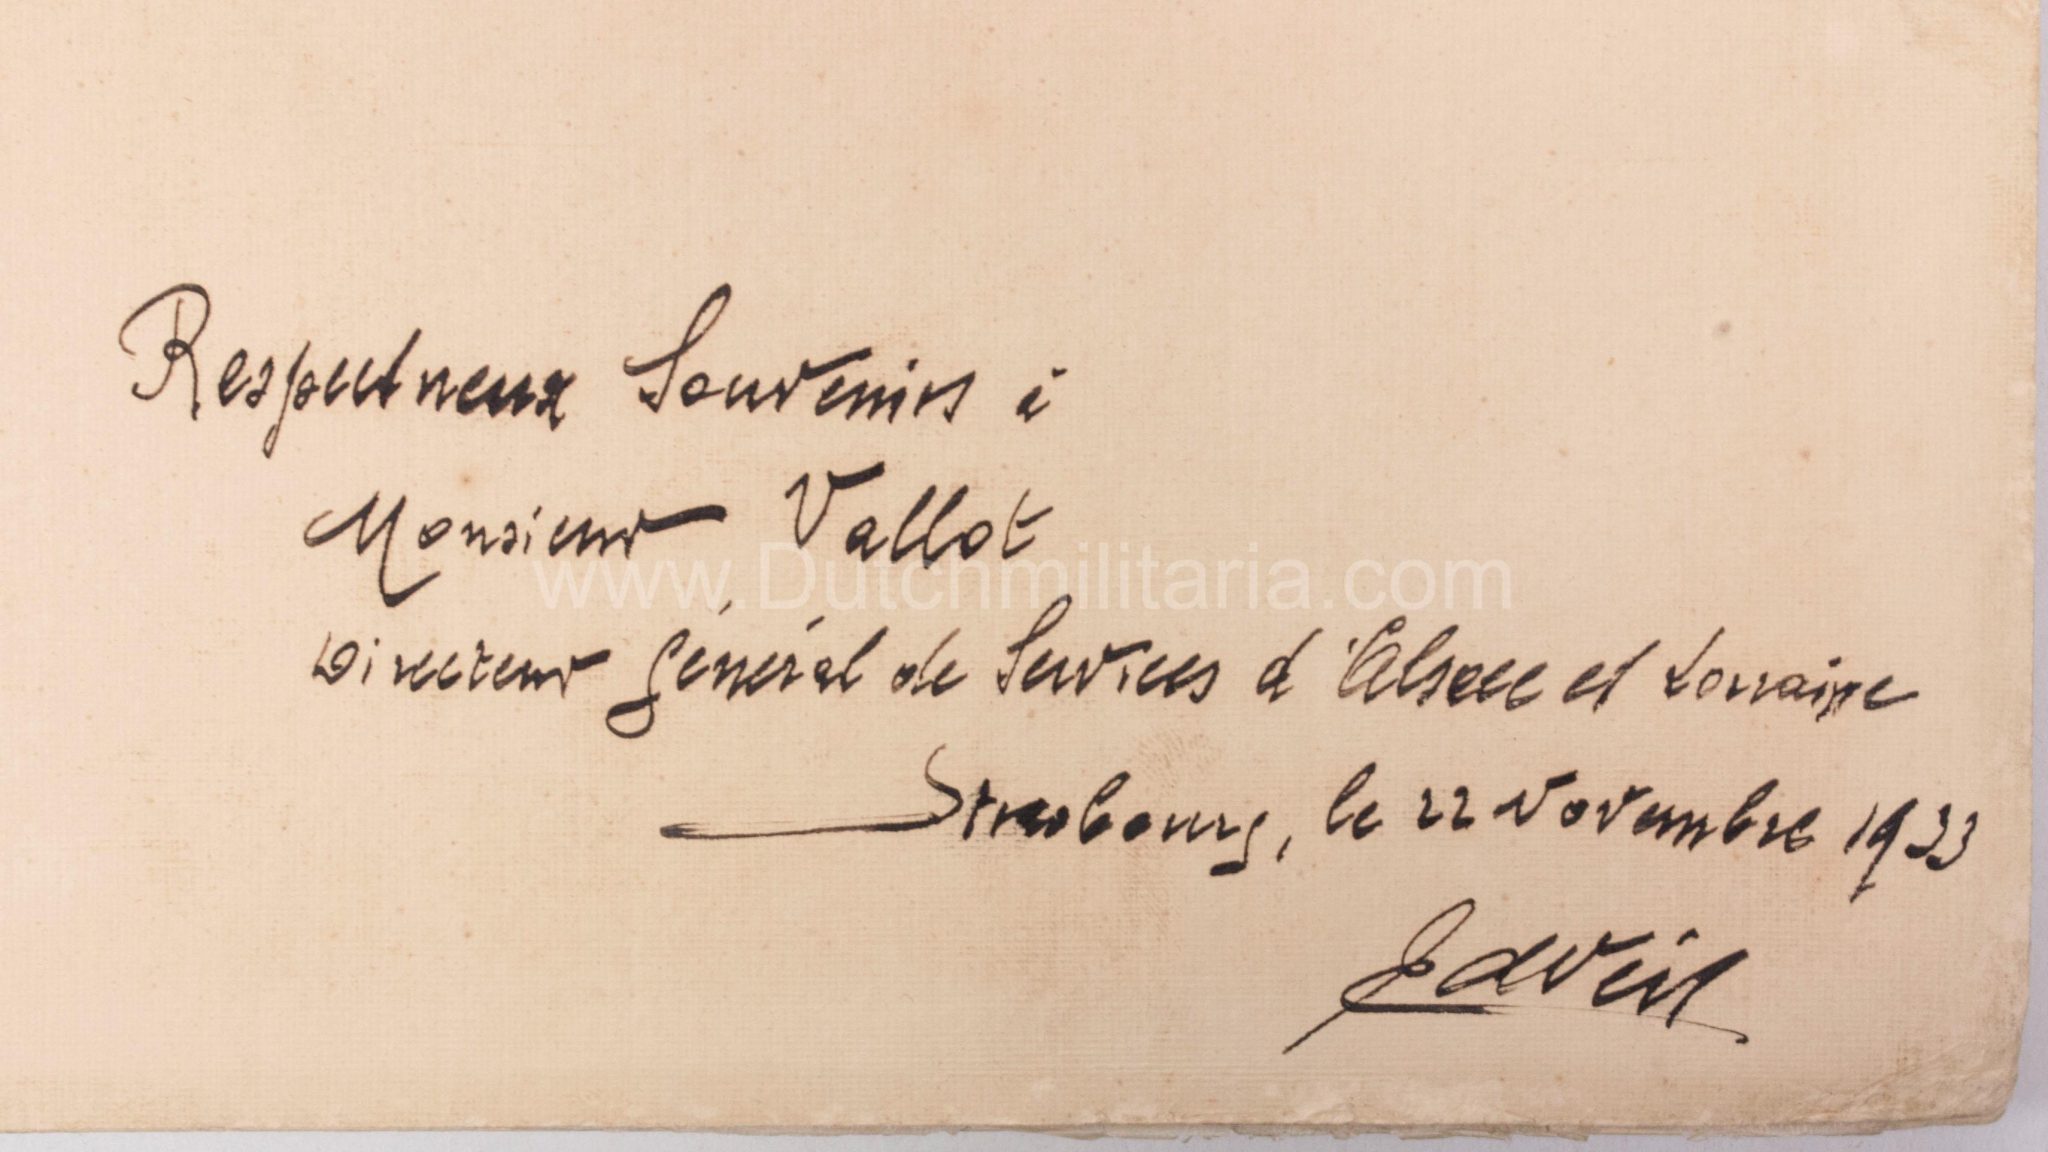 Respectueux Souvenirs à
Monsieur Vallot
www.Dutchmilitaria.com
Directeur général de Services d'Alsace et Lorraine
Strasbourg, le 22 Novembre 1933